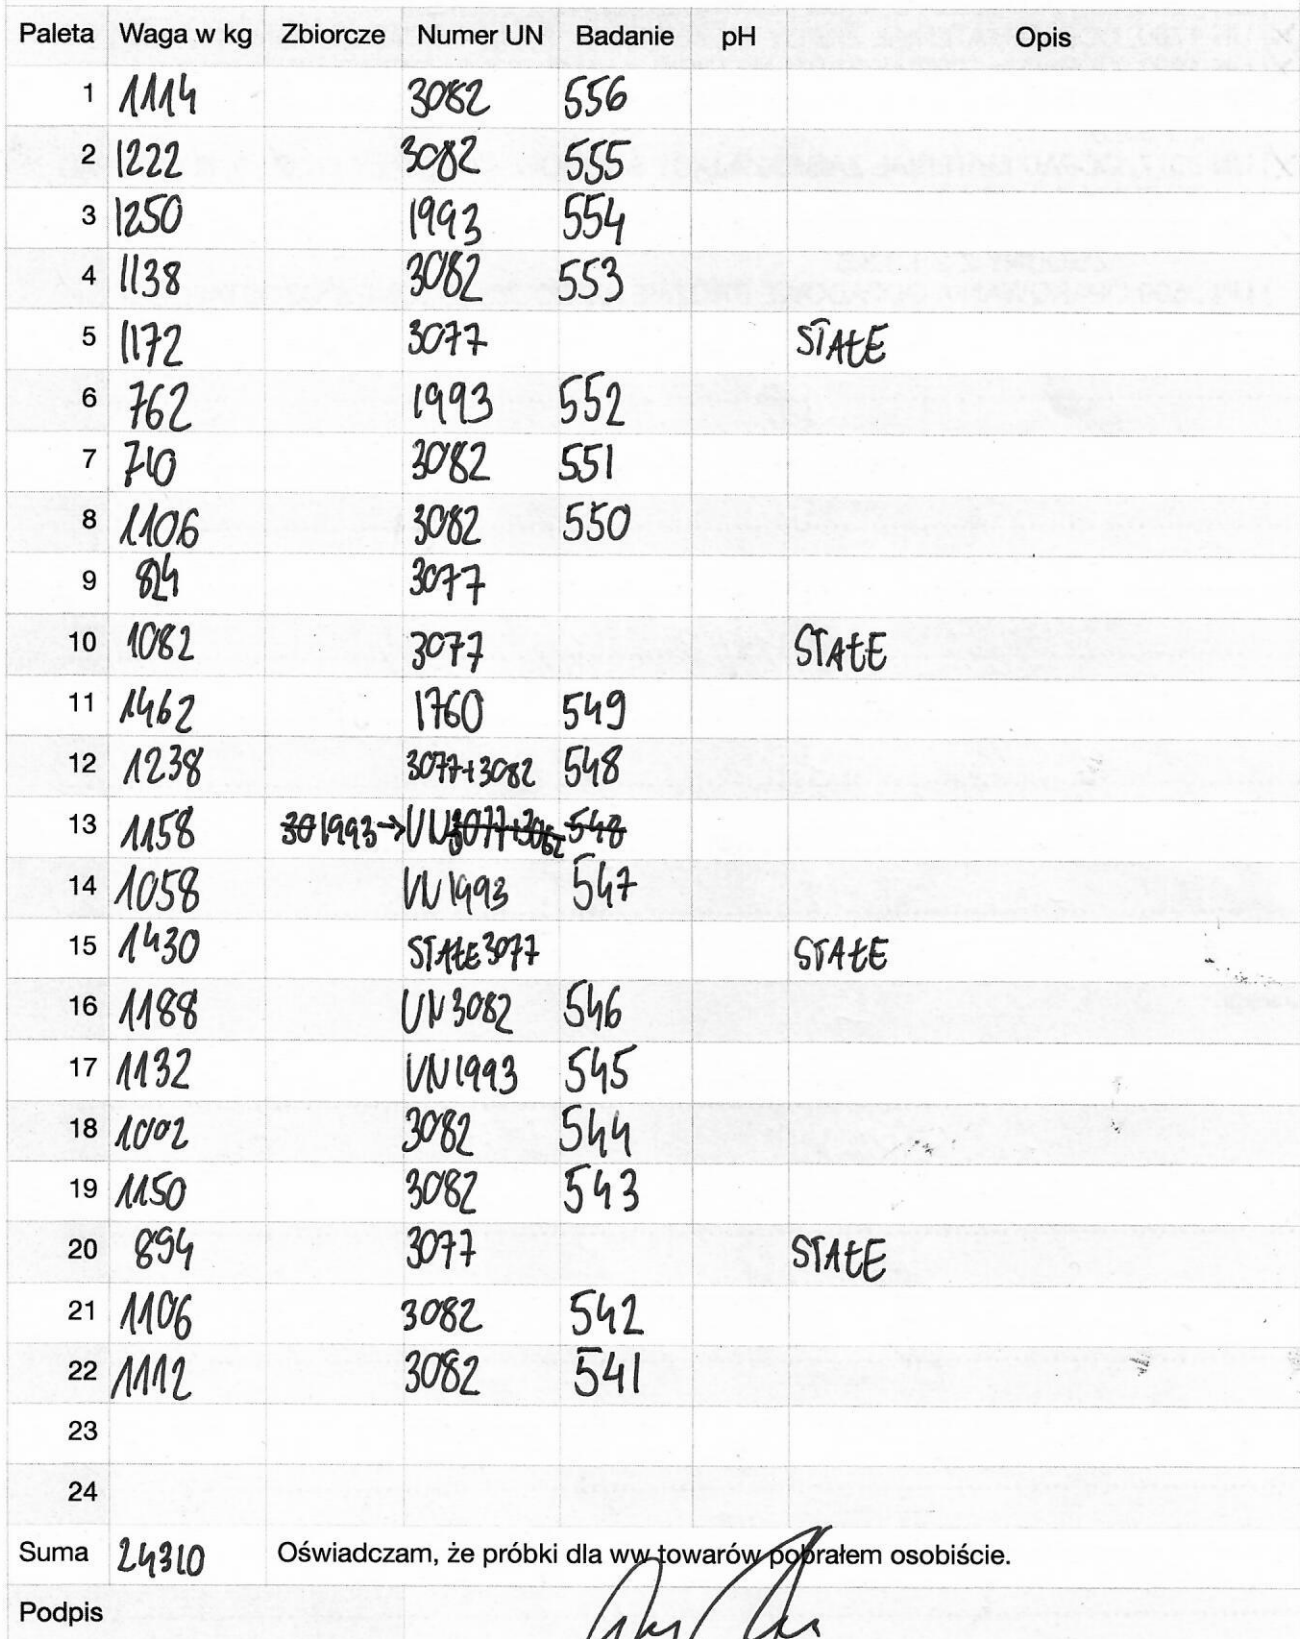 Paleta Waga w kg Zbiorcze Numer UN Badanie pH Opis
1 1114 3082 556
2 1222 3082 555
3 1250 1993 554
4 1138 3082 553
5 1172 3077 STAŁE
6 762 1993 552
7 710 3082 551
8 1106 3082 550
9 824 3077
10 1082 3077 STAŁE
11 1462 1760 549
12 1238 3077+3082 548
13 1158 30 1993→UN 3077+3082 548
14 1058 UN1993 547
15 1430 STAŁE 3077 STAŁE
16 1188 UN3082 546
17 1132 UN1993 545
18 1002 3082 544
19 1150 3082 543
20 894 3077 STAŁE
21 1106 3082 542
22 1112 3082 541
23
24
Suma 24310 Oświadczam, że próbki dla ww towarów pobrałem osobiście.
Podpis